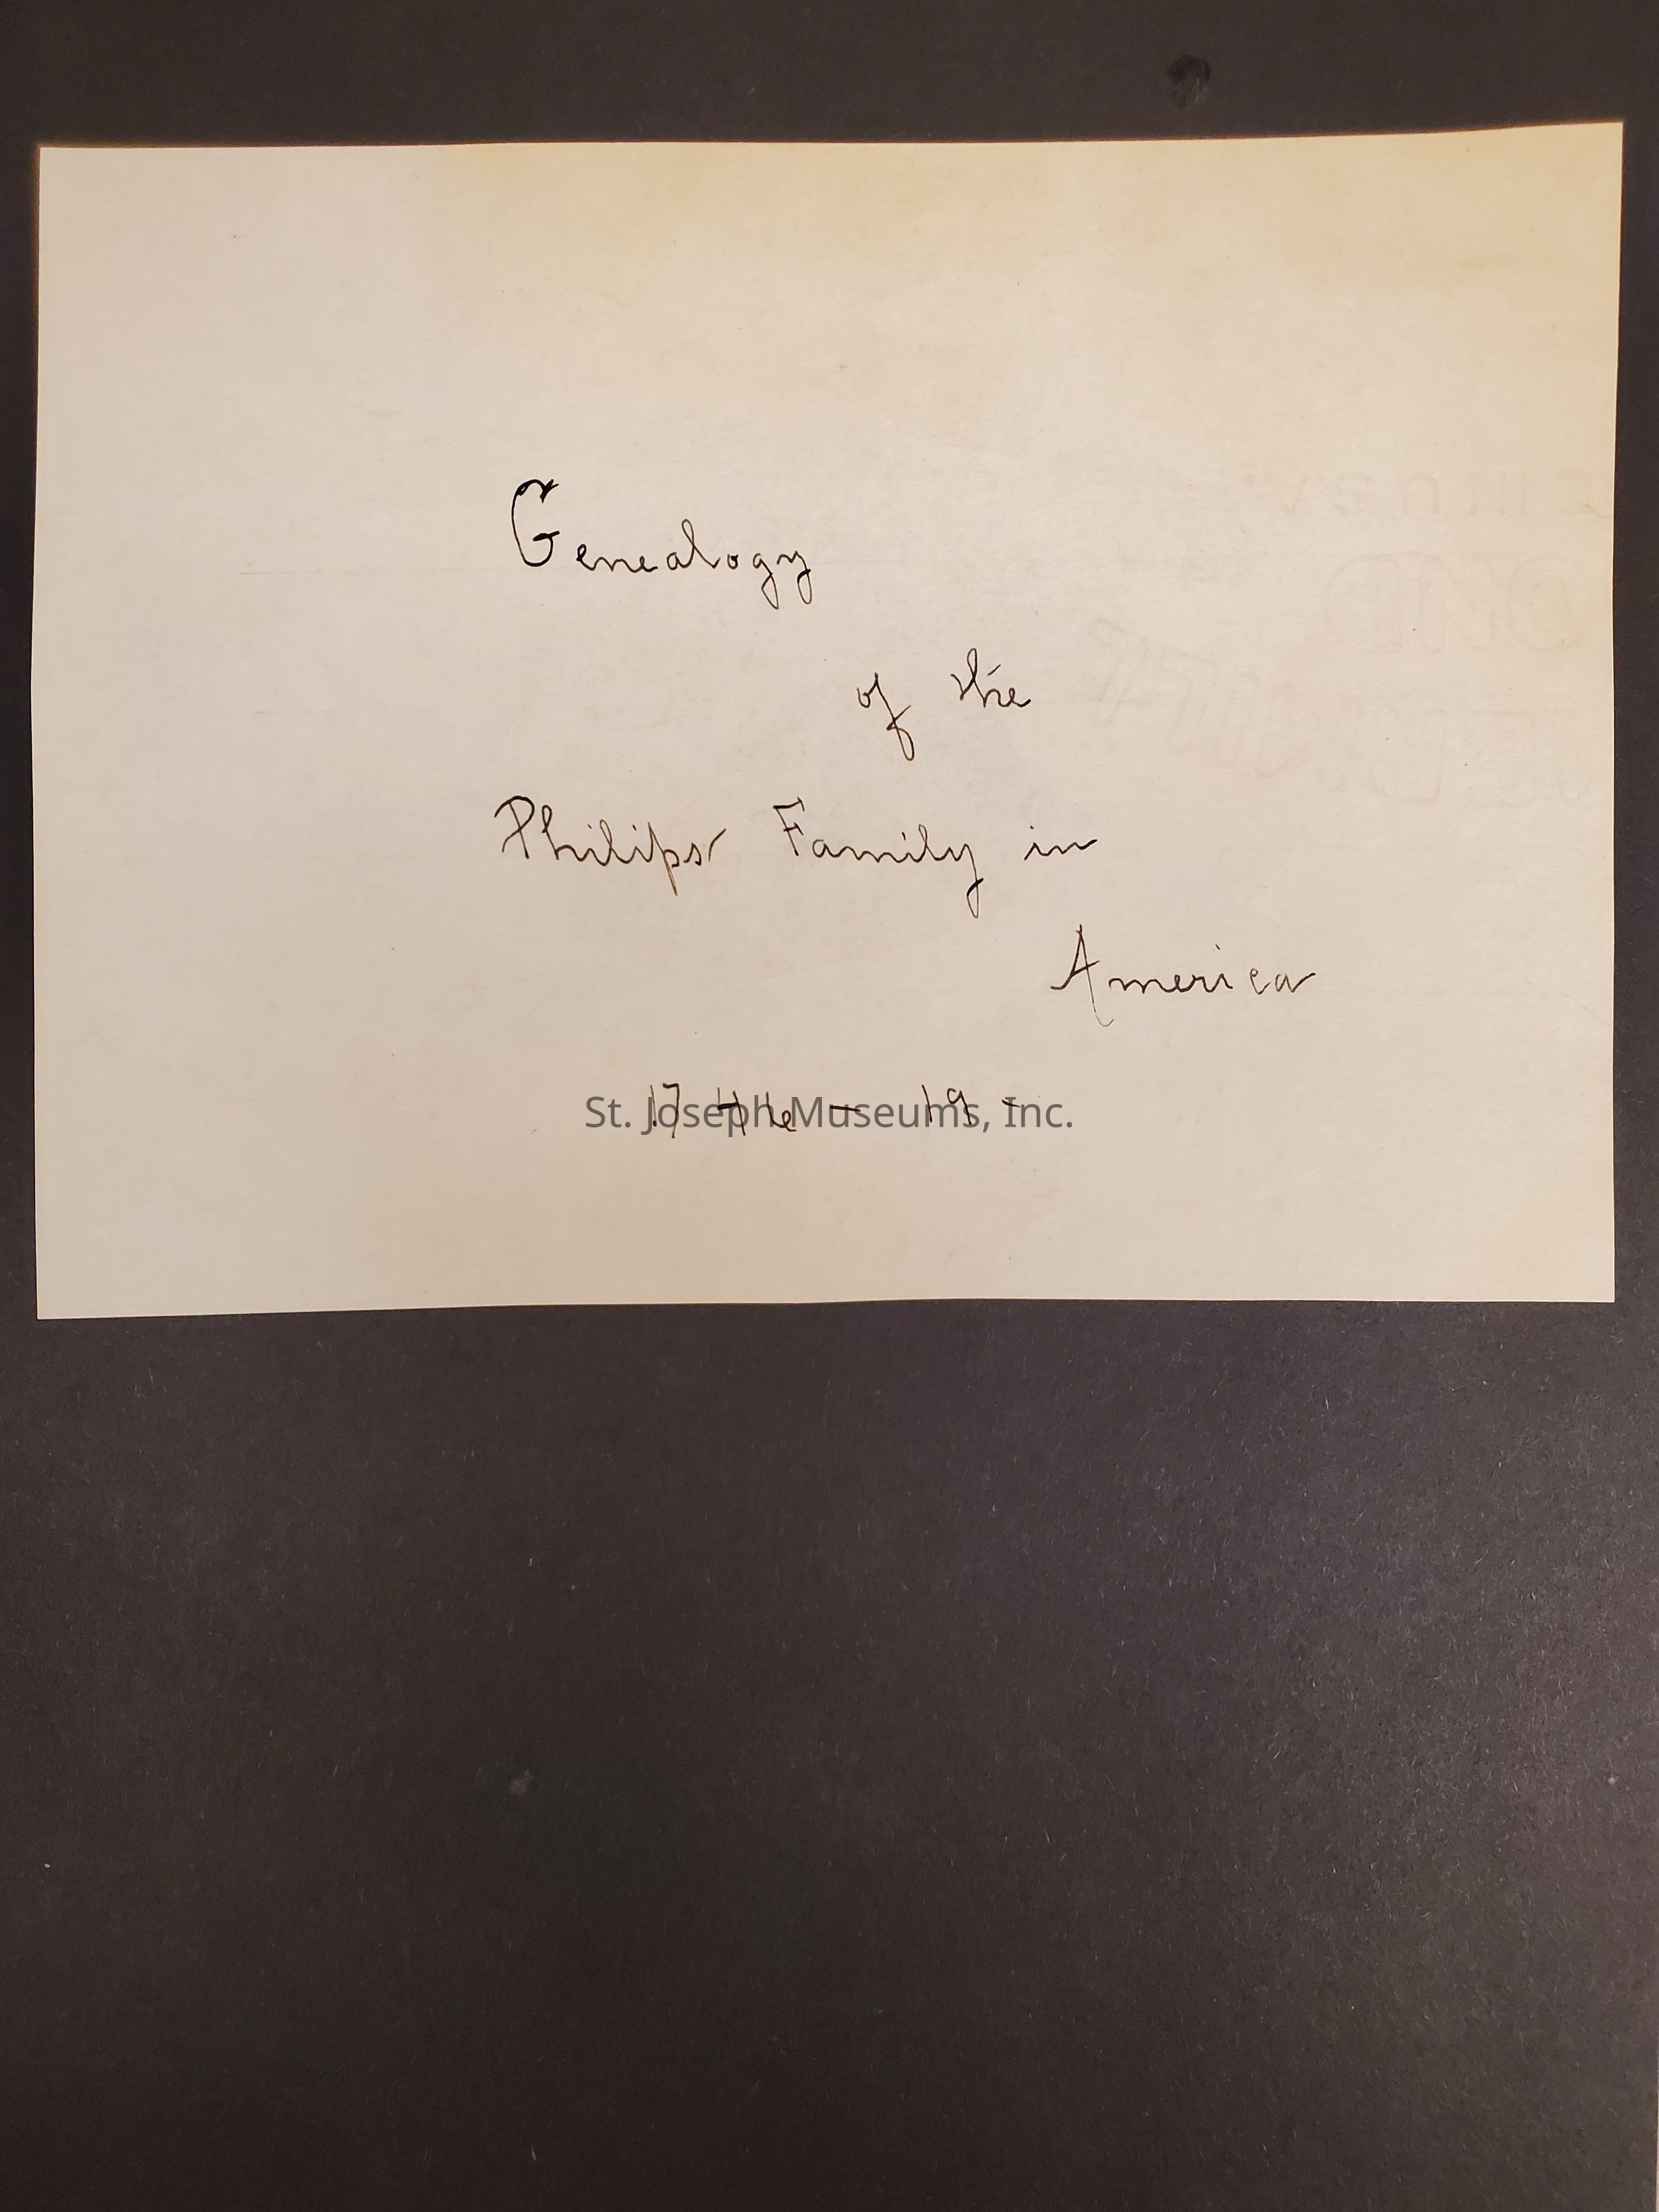 Genealogy
of the
Philips Family in
America
1746 - 19 -
St. Joseph Museums, Inc.